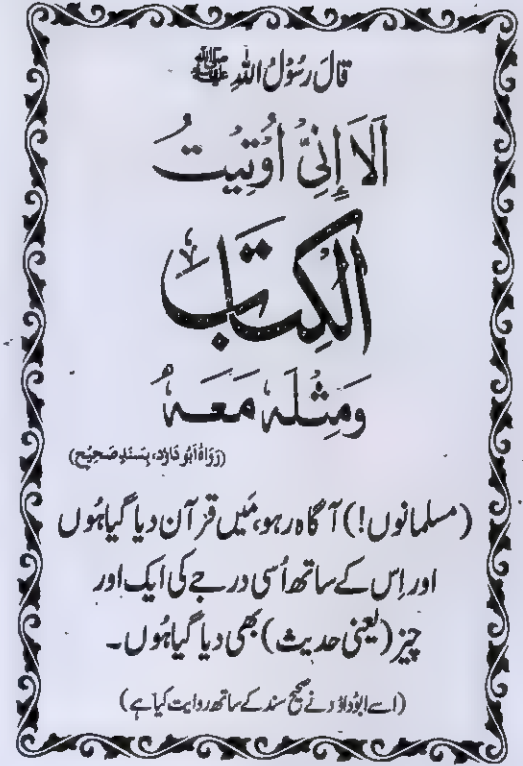 قَالَ رَسُوْلُ اللهِ ﷺ
اَلَا إِنِّيْ اُوْتِيْتُ
الْكِتَابَ
وَمِثْلَهٗ مَعَهٗ
(رَوَاهُ اَبُوْ دَاوٗد، بِسَنَدٍ صَحِيْحٍ)
(مسلمانوں!) آگاہ رہو، مَیں قرآن دیا گیا ہُوں
اور اِس کے ساتھ اُسی درجے کی ایک اور
چیز (یعنی حدیث) بھی دیا گیا ہُوں۔
(اسے ابوُداوٗد نے صحیح سند کے ساتھ روایت کیا ہے)